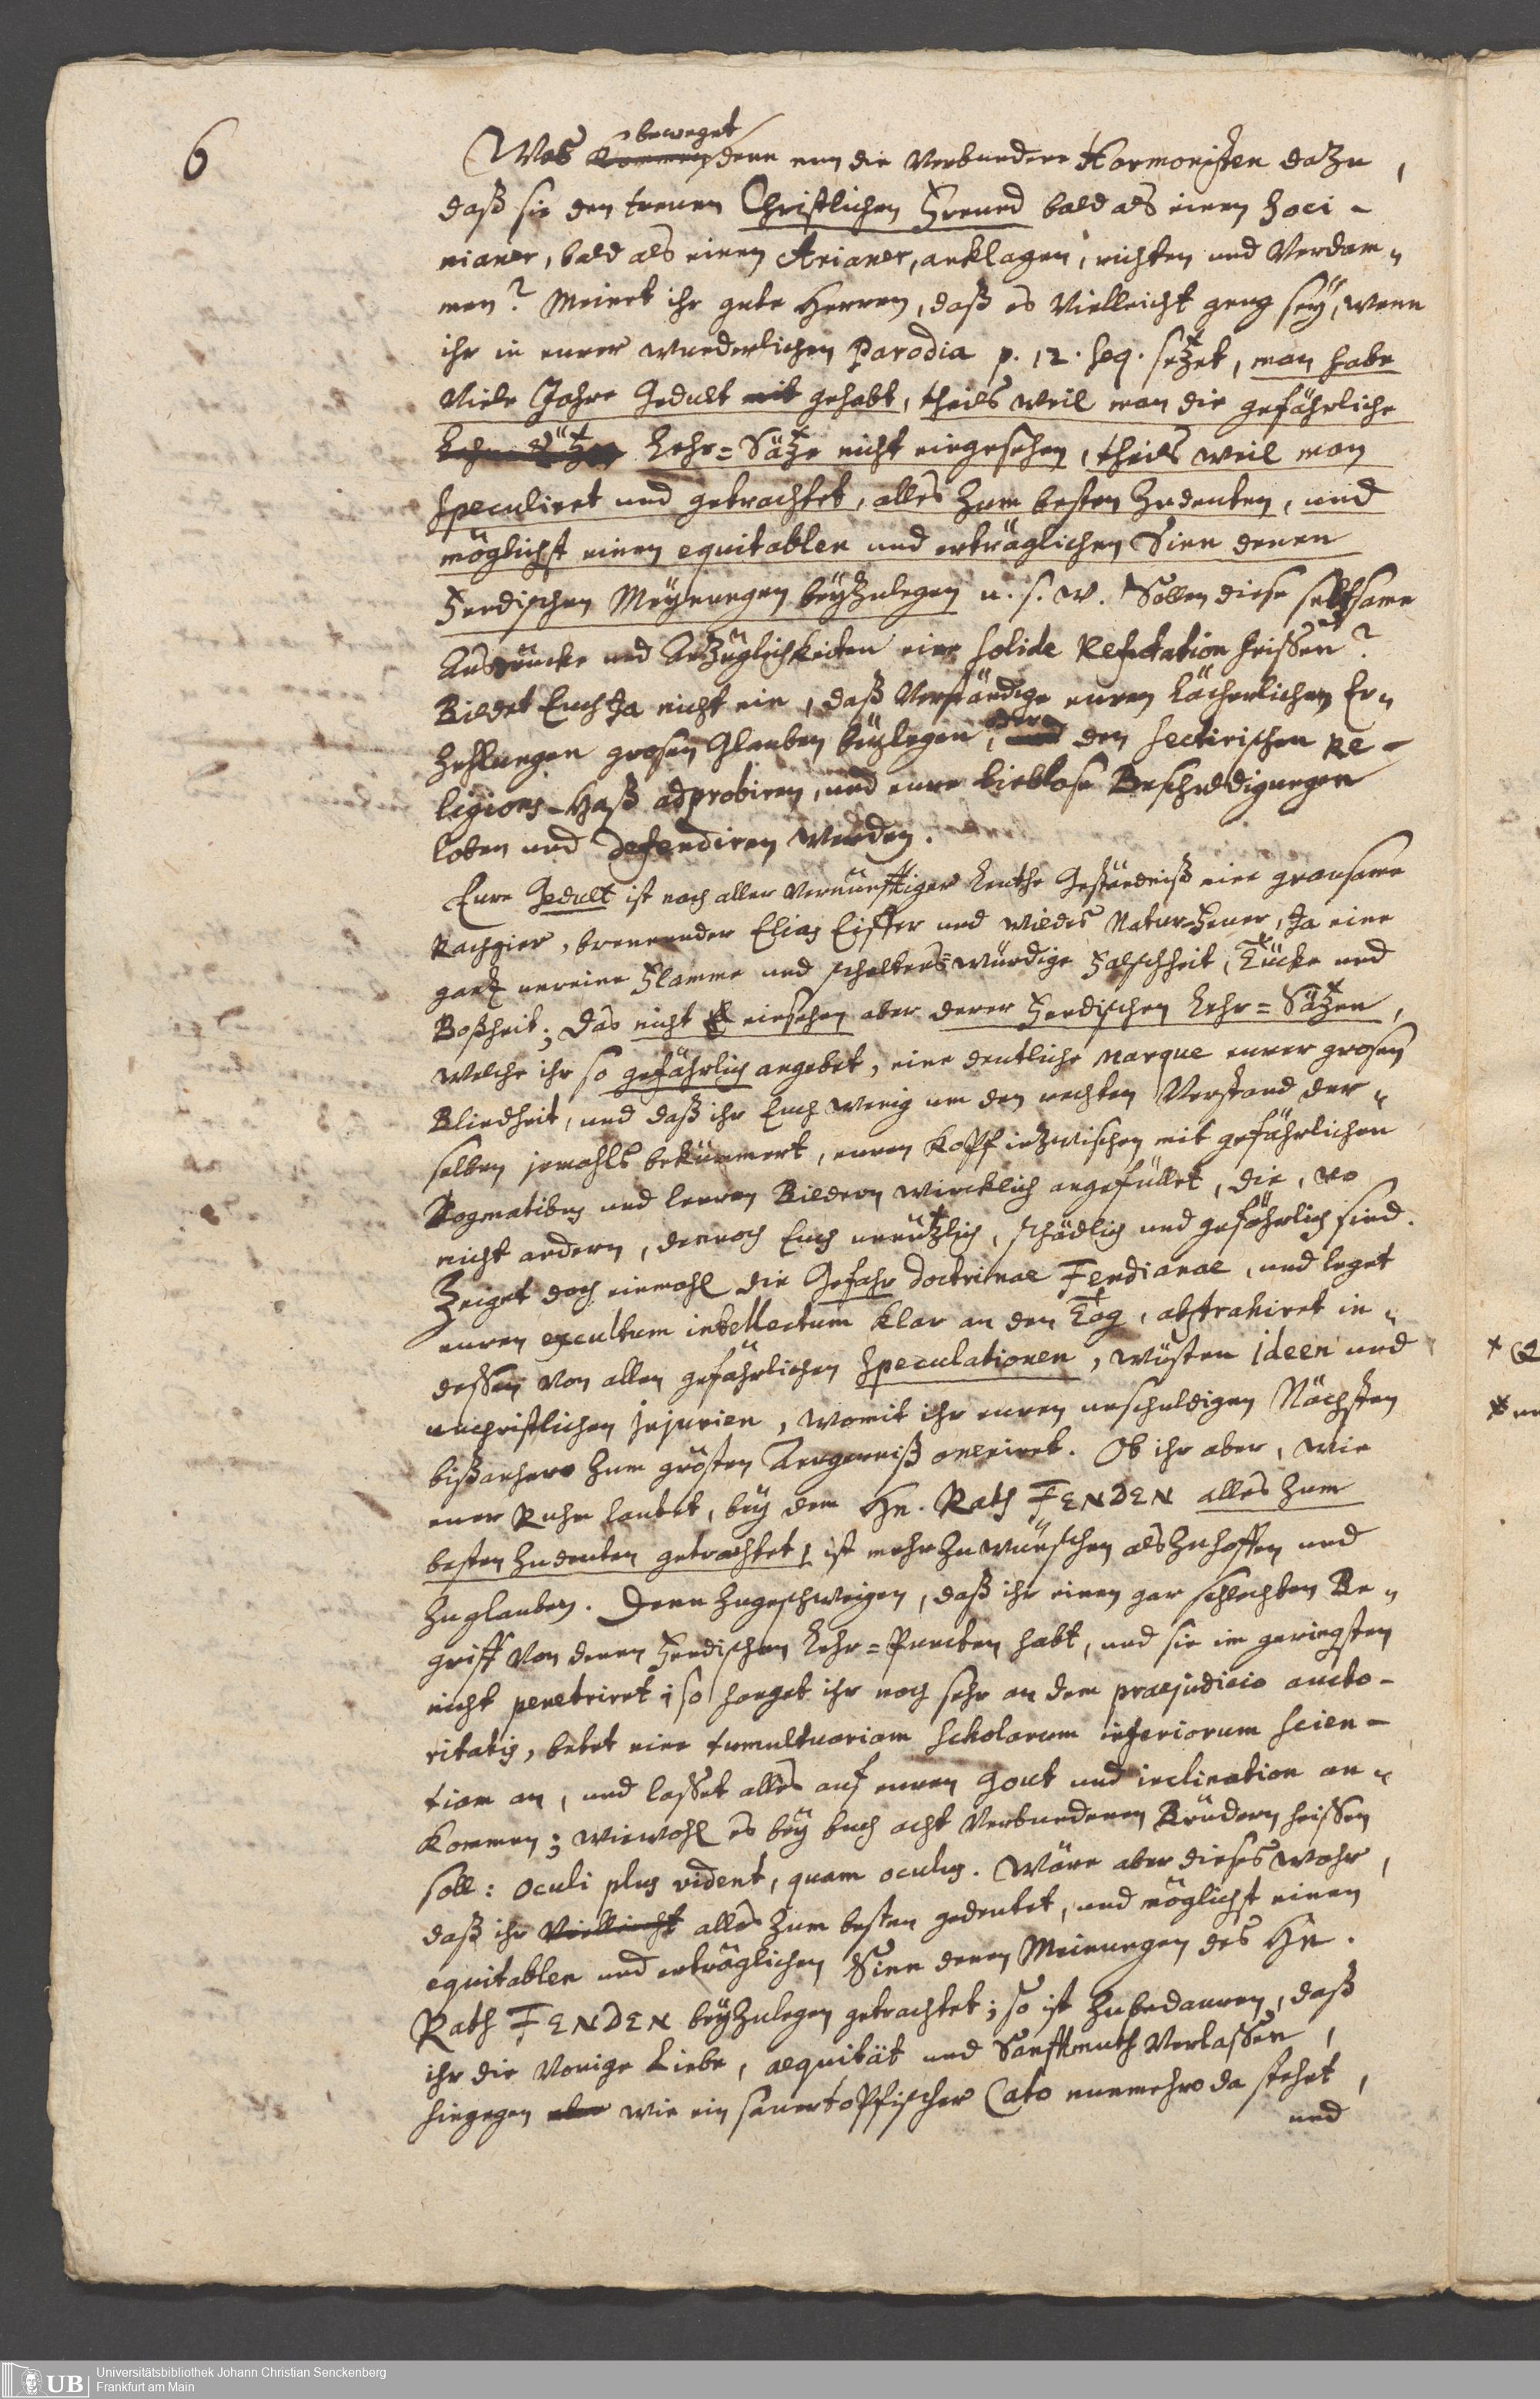 6
beweget
Was kommen denn nun die Verbundene Harmonisten dazu,
daß sie den treuen Christlichen Freund bald als einen Soci-
nianer, bald als einen Arianer, anklagen, richten und Verdam-
men? Meinet ihr gute Herren, daß es Vielleicht gnug seÿ, wenn
ihr in eurer wunderlichen Parodia p. 12. seq. setzet, man habe
Viele Jahre Gedult mit gehabt, theils weil man die gefährliche
Lehr-Sätze Lehr=Sätze nicht eingesehen, theils weil man
speculiret und getrachtet, alles zum besten zudeuten, und
möglichst einen equitablen und erträglichen Sinn denen
Fendischen Meÿnungen beÿzulegen u. s. w. Sollen diese seltsame
Ausdrücke und Anzüglichkeiten eine solide Refutation heissen?
Bildet Euch Ja nicht ein, daß Verständige euren Lächerlichen Er-
zehlungen grosen Glauben beÿlegen, und den sectirischen Re-
ligions-Haß adprobiren, und eure Lieblose Beschuldigungen
loben und defendiren werden.
Eure Gedult ist nach aller Vernünfftiger Leuthe Geständniß eine grausame
Rachgier, brennender Elias Eiffer und wildes Natur-Feuer, Ja eine
gantz unreine Flamme und scheltens=würdige Falschheit, Tücke und
Boßheit; Das nicht einsehen aber derer Fendischen Lehr=Sätzen,
welche ihr so gefährlich angebet, eine deutliche Marque eurer grosen
Blindheit, und daß ihr Euch wenig um den rechten Verstand der-
selben jemahls bekümmert, euren Kopff inzwischen mit gefährlichen
Dogmatibus und leeren Bildern wircklich angefüllet, die, wo
nicht andern, dennoch Euch unnützlich, schädlich und gefährlich sind.
Zeiget doch einmahl die Gefahr doctrinae Fendianae, und leget
euren excultum intellectum klar an den Tag, abstrahiret in-
dessen von allen gefährlichen Speculationen, wüsten ideen und
unchristlichen injurien, womit ihr euren unschuldigen Nächsten
bißanhero zum grösten Aergerniß oneriret. Ob ihr aber, wie
euer Ruhm lautet, beÿ dem Hn. Rath FENDEN alles zum
besten zudeuten getrachtet, ist mehr zu wünschen als zuhoffen und
zuglauben. Denn zugeschweigen, daß ihr einen gar schlechten Be-
griff Von denen Fendischen Lehr=Puncten habt, und sie im geringsten
nicht penetriret; so hanget ihr noch sehr an dem praejudicio aucto-
ritatis, betet eine tumultuariam scholarum inferiorum scien-
tiam an, und lasset alles auf euren gout und inclination an-
kommen; wiewohl es beÿ Euch acht Verbundenen Brüdern heissen
soll: oculi plus vident, quam oculus. Wäre aber dieses wahr,
daß ihr Vielleicht alles zum besten gedeutet, und möglichst einen
equitablen und erträglichen Sinn denen Meinungen des Hn.
Rath FENDEN beÿzulegen getrachtet; so ist zubedauren, daß
ihr die Vorige Liebe, aequität und Sanfftmuth Verlassen,
hingegen aber wie ein sauertöpffischer Cato nunmehro da stehet,
und
UB
Universitätsbibliothek Johann Christian Senckenberg
Frankfurt am Main